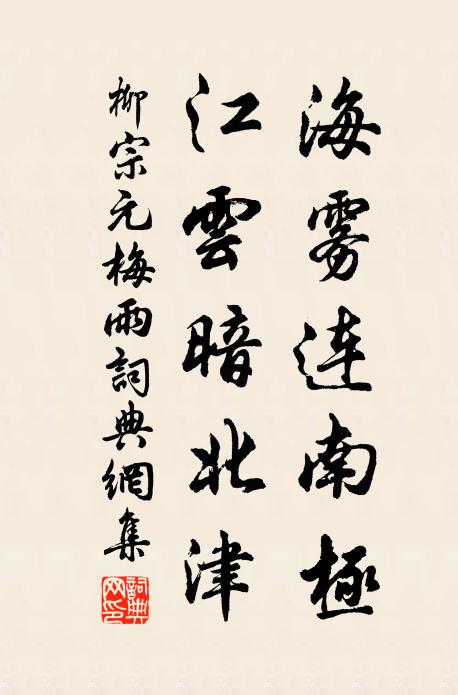 海雾连南極
江雲暗北津
柳宗元梅雨詞典網集
詞典網印